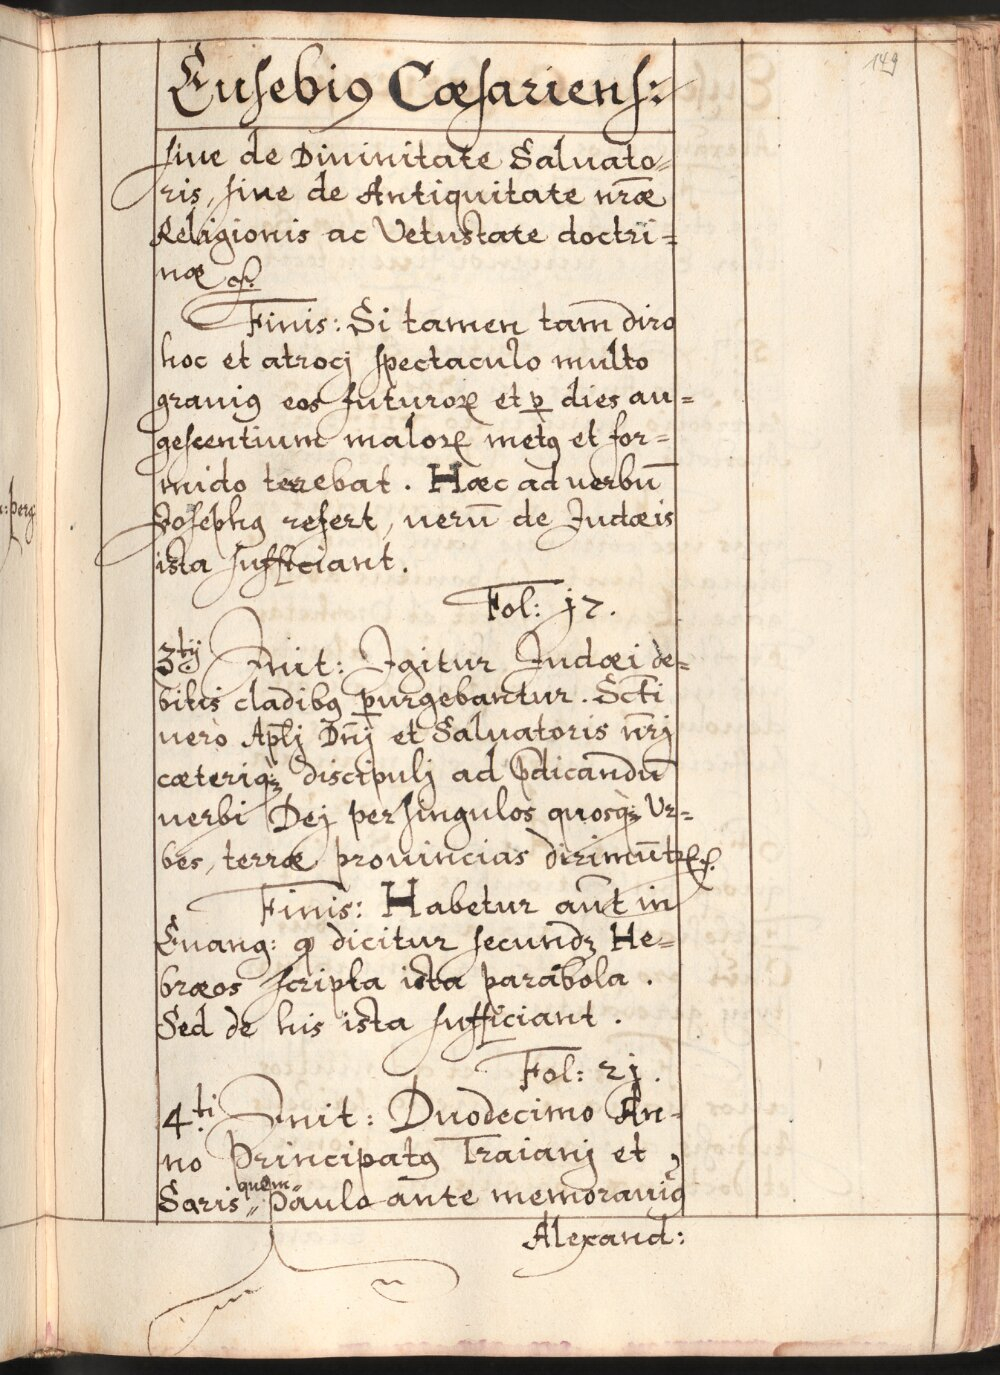 149
Eusebiꝰ Cæsariens:
siue de Diuinitate Saluato=
ris, siue de Antiquitate nr̄æ
Religionis ac Vetustate doctri=
næ
Finis: Si tamen tam diro
hoc et atrocj spectaculo multo
grauiꝰ eos futuroꝝ et ꝑ dies au=
gescentium maloꝝ metꝰ et for=
mido terrebat. Hæc ad uerbū
Josephꝰ refert, uerū de Judæis
ista sufficiant.
Fol: 17.
3tij Init: Igitur Judæi de=
bitis cladibꝰ ꝑurgebantur. Sc̄ti
uerò Apl̄j Dn̄j et Saluatoris nr̄j
cæteriqꝫ discipulj ad p̄dicandū
uerbi Dej per singulos quosqꝫ Vr=
bes, terræ prouincias dirimūtr
Finis: Habetur aūt in
Euang: ꝙ dicitur secundꝫ He=
bræos scripta ista parabola.
Sed de his ista sufficiant.
Fol: 21.
4.ti Init: Duodecimo An=
no Principatꝰ Traianj et
Saris quem paulo ante memorauiꝰ
Alexand:
: perg